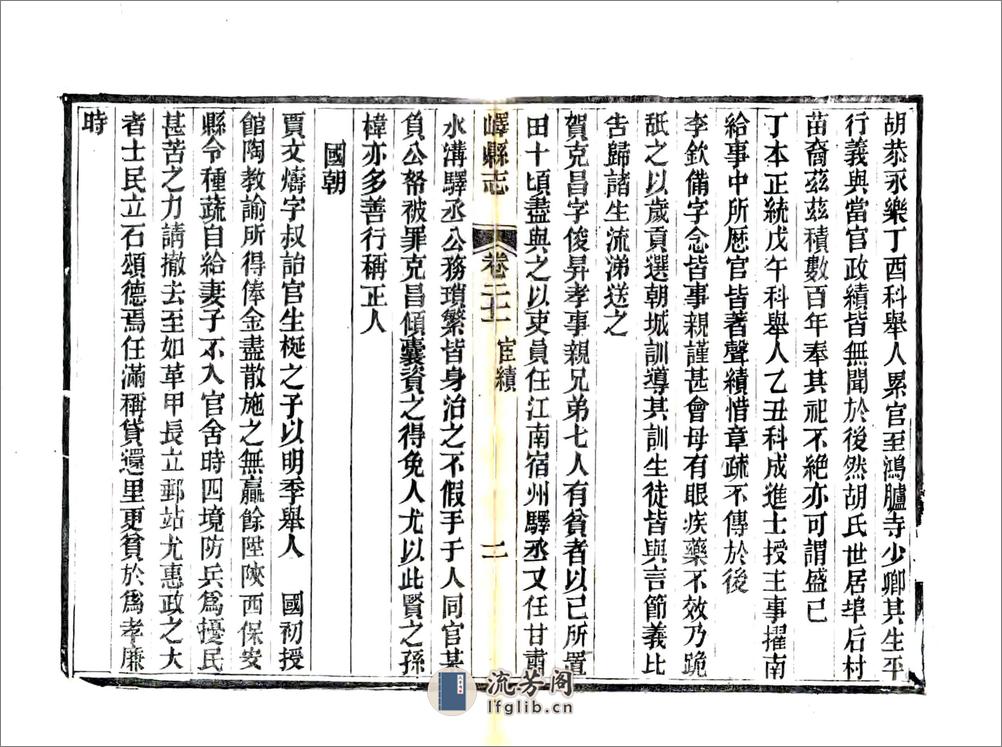 胡恭永樂丁酉科舉人累官至鴻臚寺少卿其生平
行義與當官政績皆無聞於後然胡氏世居埠后村
苗裔茲茲積數百年奉其祀不絶亦可謂盛已
丁本正統戊午科舉人乙丑科成進士授主事擢南
給事中所歴官皆著聲績惜章疏不傳於後
李欽備字念皆事親謹甚會母有眼疾藥不效乃跪
舐之以歲貢選朝城訓導其訓生徒皆與言節義比
告歸諸生流涕送之
賀克昌字俊昇孝事親兄弟七人有貧者以己所置
田十頃盡與之以吏員任江南宿州驛丞又任甘肅
嶧縣志
卷二十二 宦績
二
水溝驛丞公務瑣繁皆身治之不假手于人同官某
負公帑被罪克昌傾囊資之得免人尤以此賢之孫
樟亦多善行稱正人
國朝
賈文燽字叔詒官生梴之子以明季舉人 國初授
館陶教諭所得俸金盡散施之無贏餘陞陝西保安
縣令種蔬自給妻子不入官舍時四境防兵爲擾民
甚苦之力請撤去至如革甲長立郵站尤惠政之大
者士民立石頌德焉任滿稱貸還里更貧於爲孝廉
時
流芳阁
lfglib.cn